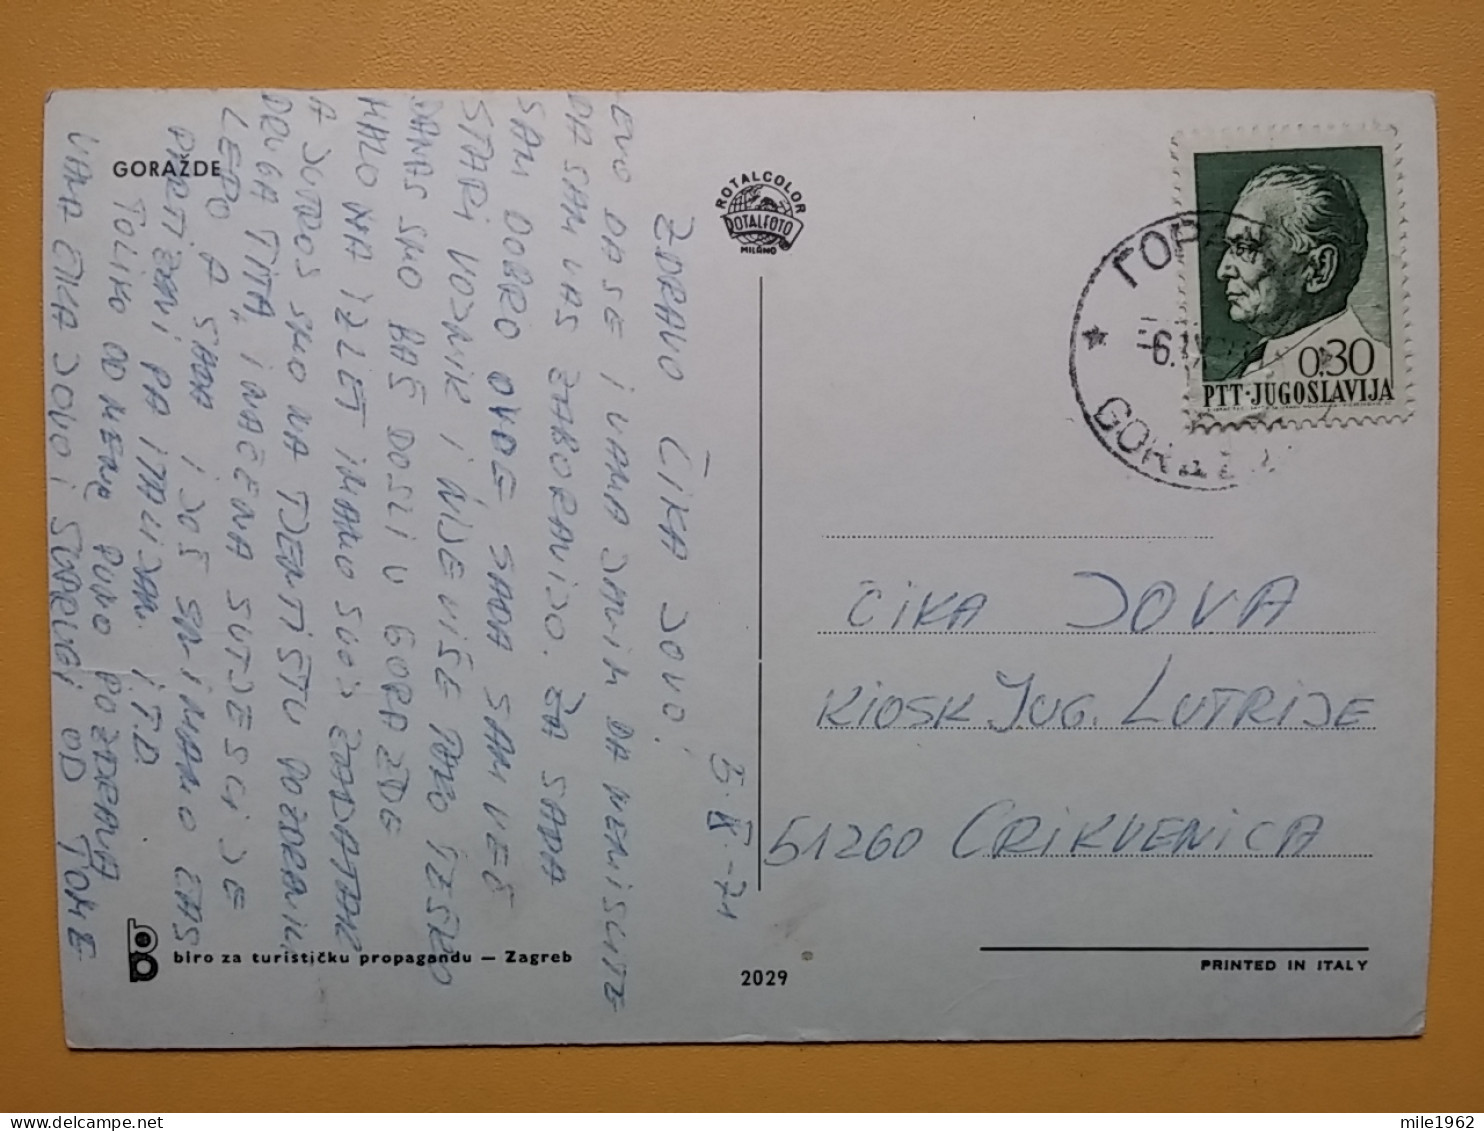 GORAŽDE
ROTALCOLOR
ROTALFOTO
MILANO
5.IX.-71
ZDRAVO ČIKA JOVO!
EVO DA SE I VAMA JAVIM DA NEMISLITE
DA SAM VAS ZABORAVIJO. ZA SADA
SAM DOBRO OVDE SADA SAM VEČ
STARI VOJNIK I NIJE VIŠE TAKO TEŠKO
DANAS SMO BAŠ DOŠLI U GORAŽDE
MALO NA IZLET IMAMO SVOJ ZADATAK
A JUTROS SMO NA TJENTIŠTU
DRUGA TITA, INAČE NA SUTJESCI JE
LEPO A SADA I JOŠ IMAMO ČAS
PARTIZANI PA ITALIJANI I.T.D.
TOLIKO OD MENE PUNO POZDRAVA
VAMA ČIKA JOVO I SUPRUGI OD TOME
biro za turističku propagandu — Zagreb
2029
ГОРАЖ
6.IX
GORAŽ
0,30
PTT·JUGOSLAVIJA
ČIKA JOVA
KIOSK JUG. LUTRIJE
51260 CRIKVENICA
PRINTED IN ITALY
mile1962